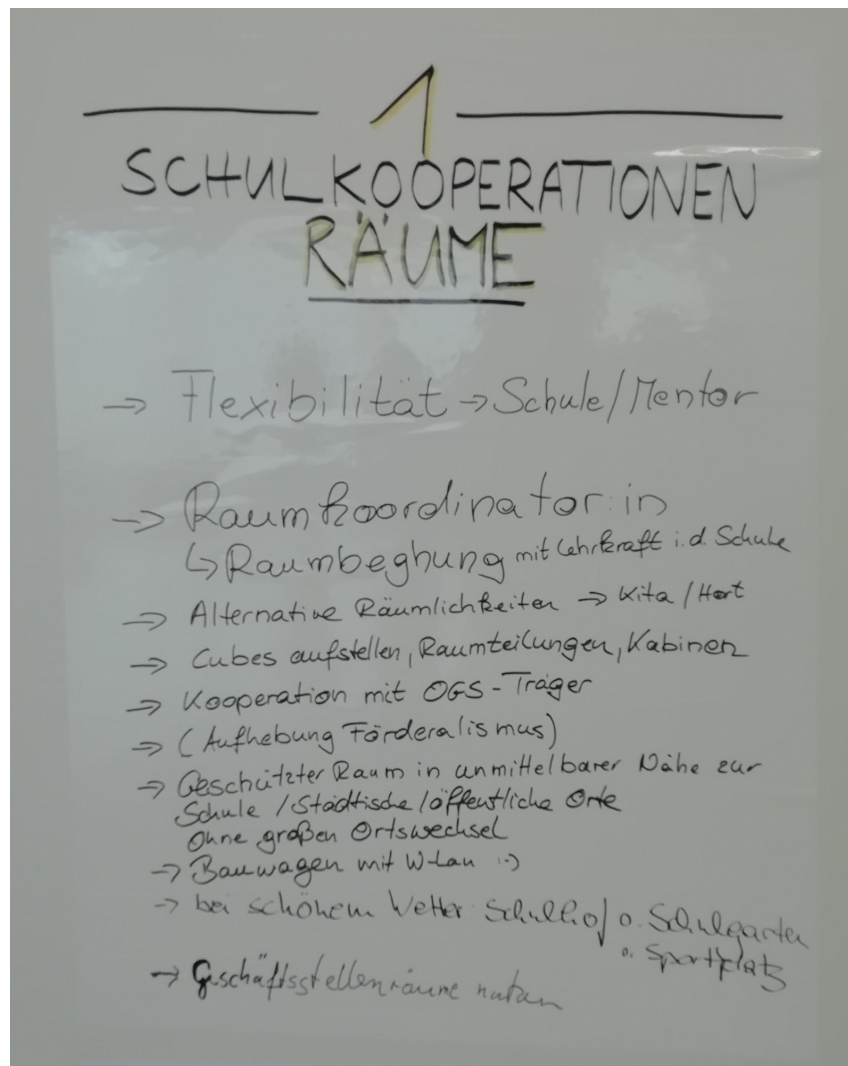 1
SCHULKOOPERATIONEN
RÄUME
→ Flexibilität → Schule/Mentor
→ Raumkoordinator:in
↳ Raumbeghung mit Lehrkraft i.d. Schule
→ Alternative Räumlichkeiten → Kita/Hort
→ Cubes aufstellen, Raumteilungen, Kabinen
→ Kooperation mit OGS-Träger
→ (Aufhebung Förderalismus)
→ Geschützter Raum in unmittelbarer Nähe zur
Schule / Städtische / öffentliche Orte
Ohne großen Ortswechsel
→ Bauwagen mit W-Lan :-)
→ bei schönem Wetter Schulhof o. Schulgarten
o. Sportplatz
→ Geschäftsstellenräume nutzen